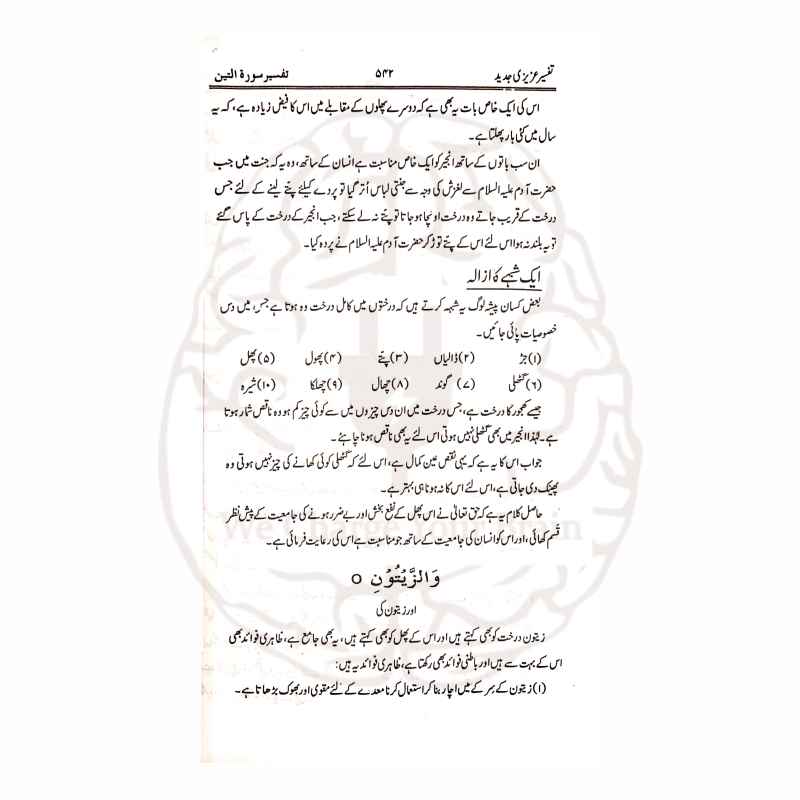 تفسیر عزیزی جدید ۵۴۲ تفسیر سورۃ التین
اس کی ایک خاص بات یہ بھی ہے کہ دوسرے پھلوں کے مقابلے میں اس کا فیض زیادہ ہے، کہ یہ
سال میں کئی بار پھلتا ہے۔
ان سب باتوں کے ساتھ انجیر کو ایک خاص مناسبت ہے انسان کے ساتھ، وہ یہ کہ جنت میں جب
حضرت آدم علیہ السلام سے لغزش کی وجہ سے جنتی لباس اُتر گیا تو پردے کیلئے پتّے لینے کے لئے جس
درخت کے قریب جاتے وہ درخت اونچا ہو جاتا تو پتّے نہ لے سکتے، جب انجیر کے درخت کے پاس گئے
تو یہ بلند نہ ہوا اس لئے اس کے پتّے توڑ کر حضرت آدم علیہ السلام نے پردہ کیا۔
ایک شبہے کا ازالہ
بعض کسان پیشہ لوگ یہ شبہہ کرتے ہیں کہ درختوں میں کامل درخت وہ ہوتا ہے جس میں دس
خصوصیات پائی جائیں۔
(۱) جڑ (۲) ڈالیاں (۳) پتّے (۴) پھول (۵) پھل
(۶) گٹھلی (۷) گوند (۸) چھال (۹) چھلکا (۱۰) شیرہ
جیسے کھجور کا درخت ہے، جس درخت میں ان دس چیزوں میں سے کوئی چیز کم ہو وہ ناقص شمار ہوتا
ہے۔ لہٰذا انجیر میں بھی گٹھلی نہیں ہوتی اس لئے یہ بھی ناقص ہونا چاہئے۔
جواب اس کا یہ ہے کہ یہی نقص عین کمال ہے، اس لئے کہ گٹھلی کوئی کھانے کی چیز نہیں ہوتی وہ
پھینک دی جاتی ہے، اس لئے اس کا نہ ہونا ہی بہتر ہے۔
حاصل کلام یہ ہے کہ حق تعالیٰ نے اس پھل کے نفع بخش اور بے ضرر ہونے کی جامعیت کے پیش نظر
قسم کھائی، اور اس کو انسان کی جامعیت کے ساتھ جو مناسبت ہے اس کی رعایت فرمائی ہے۔
وَالزَّيْتُوْنِ ○
اور زیتون کی
زیتون درخت کو بھی کہتے ہیں اور اس کے پھل کو بھی کہتے ہیں، یہ بھی جامع ہے، ظاہری فوائد بھی
اس کے بہت سے ہیں اور باطنی فوائد بھی رکھتا ہے، ظاہری فوائد یہ ہیں:
(۱) زیتون کے سِر کے میں اچار بنا کر استعمال کرنا معدے کے لئے مقوی اور بھوک بڑھاتا ہے۔